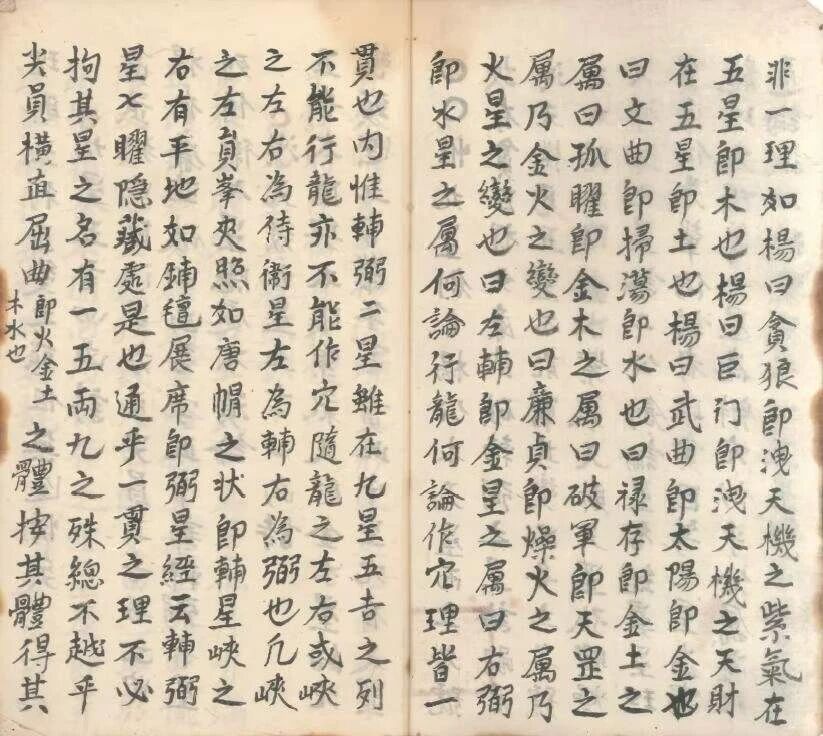 非一理如楊曰貪狼即洩天機之紫氣在
五星即木也楊曰巨门即洩天機之天財
在五星即土也楊曰武曲即太陽即金也
曰文曲即掃蕩即水也曰禄存即金土之
属曰孤曜即金木之属曰破軍即天罡之
属乃金火之變也曰廉貞即燥火之属乃
火星之變也曰左輔即金星之属曰右弼
即水星之属何論行龍何論作穴理皆一
貫也内惟輔弼二星雖在九星五吉之列
不能行龍亦不能作穴隨龍之左右或峽
之左右為待衛星左為輔右為弼也凡峽
之左右員峯夾照如唐帽之状即輔星峽之
右有平地如鋪氊展席即弼星經云輔弼
星〻曜隐藏處是也通乎一貫之理不必
拘其星之名有一五兩九之殊總不越乎
尖員橫直屈曲即火金土木水也之體按其體得其